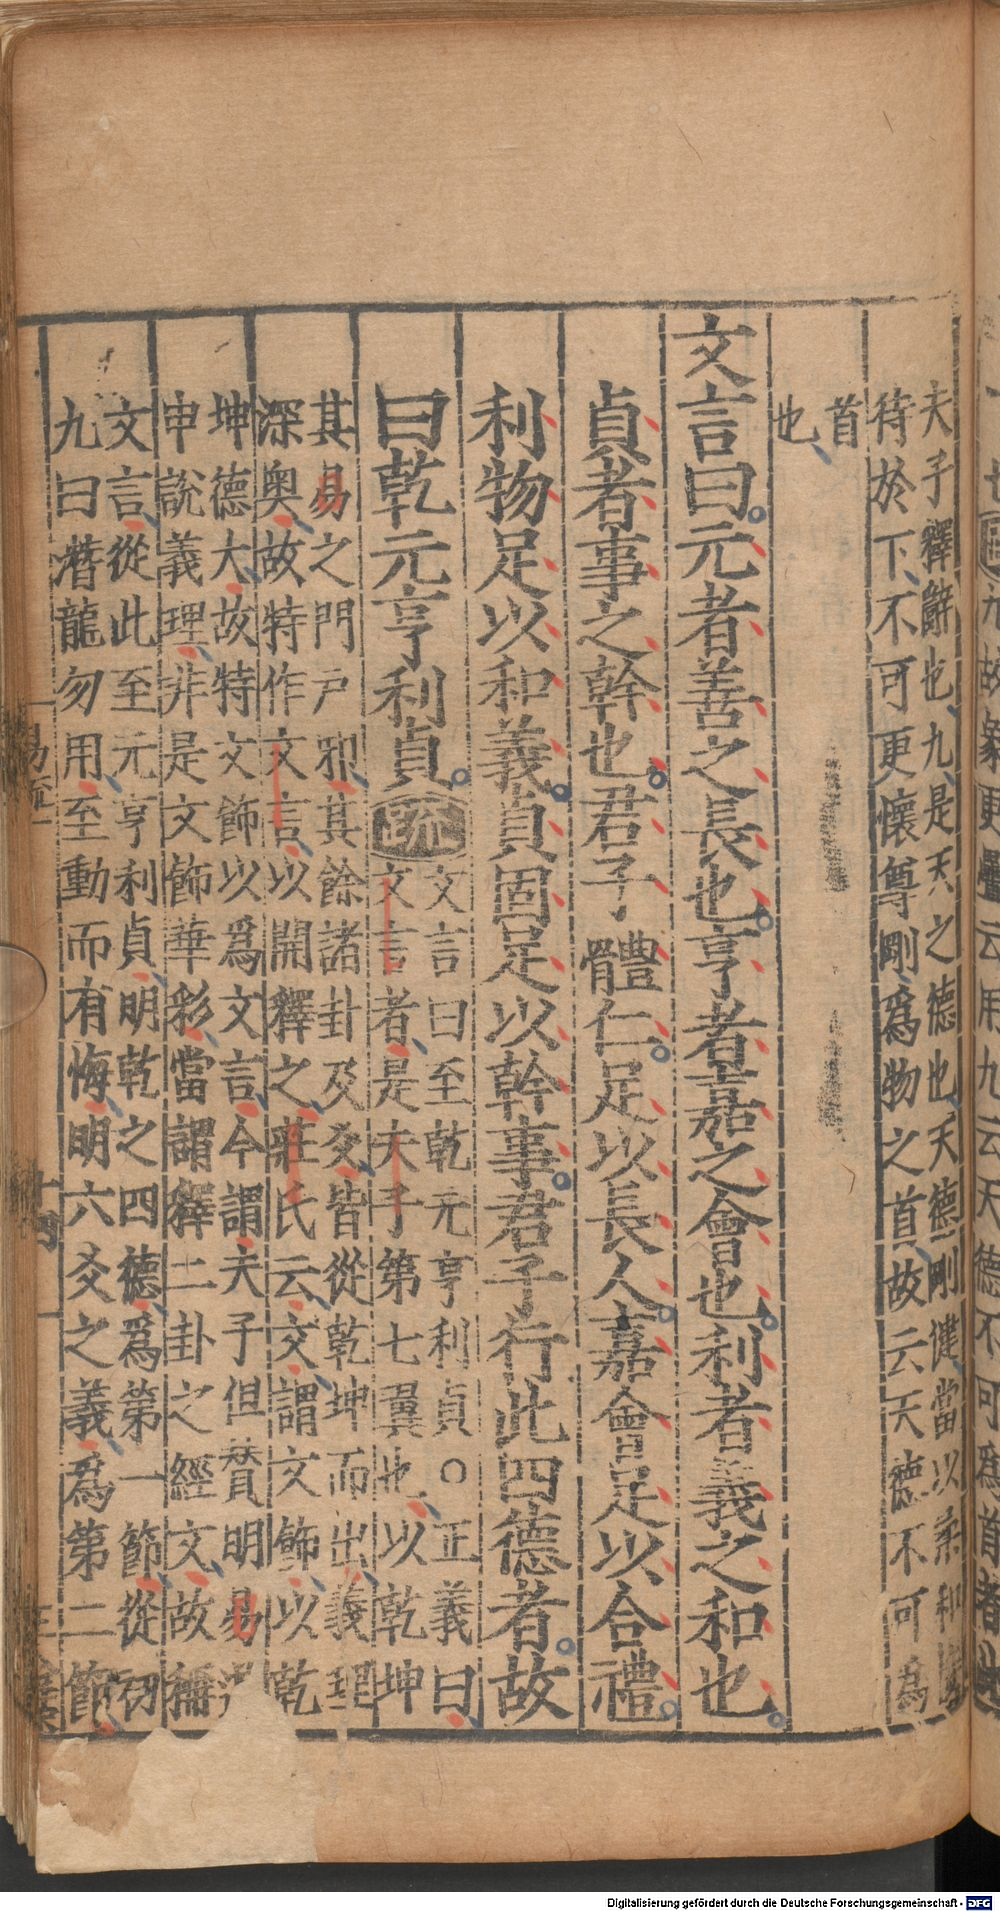 夫子釋辭也九是天之德也天德剛健當以柔和
待於下不可更懷尊剛爲物之首故云天德不可爲
首
也
文言曰元者善之長也亨者嘉之會也利者義之和也
貞者事之幹也君子體仁足以長人嘉會足以合禮
利物足以和義貞固足以幹事君子行此四德者故
曰乾元亨利貞
疏
文言曰至乾元亨利貞○正義曰
文言者是夫子第七翼也以乾坤
其易之門戶邪其餘諸卦及爻皆從乾坤而出義理
深奥故特作文言以開釋之莊氏云文謂文飾以乾
坤德大故特文飾以爲文言今謂夫子但賛明易
申說義理非是文飾華彩當謂釋二卦之經文故稱
文言從此至元亨利貞明乾之四德爲第一節從初
九曰濳龍勿用至動而有悔明六爻之義爲第二節
易疏一
十四
Digitalisierung gefördert durch die Deutsche Forschungsgemeinschaft - DFG